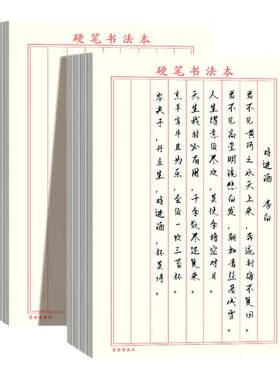 硬笔书法本
硬笔书法本
将进酒 李白
君不见黄河之水天上来，奔流到海不复回
君不见高堂明镜悲白发，朝如青丝暮成雪。
人生得意须尽欢，莫使金樽空对月。
天生我材必有用，千金散尽还复来。
烹羊宰牛且为乐，会须一饮三百杯。
岑夫子，丹丘生，将进酒，杯莫停。